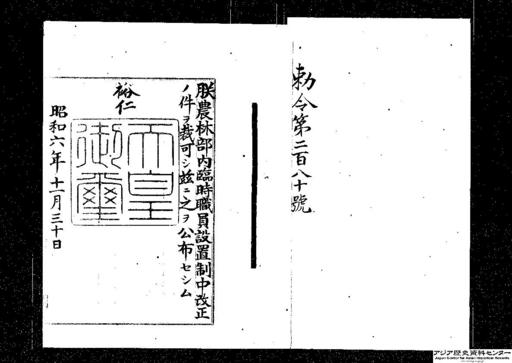 勅令第二百八十號
朕農林部内臨時職員設置制中改正
ノ件ヲ裁可シ玆ニ之ヲ公布セシム
裕仁
天皇
御璽
昭和六年十一月三十日
アジア歴史資料センター
Japan Center for Asian Historical Records